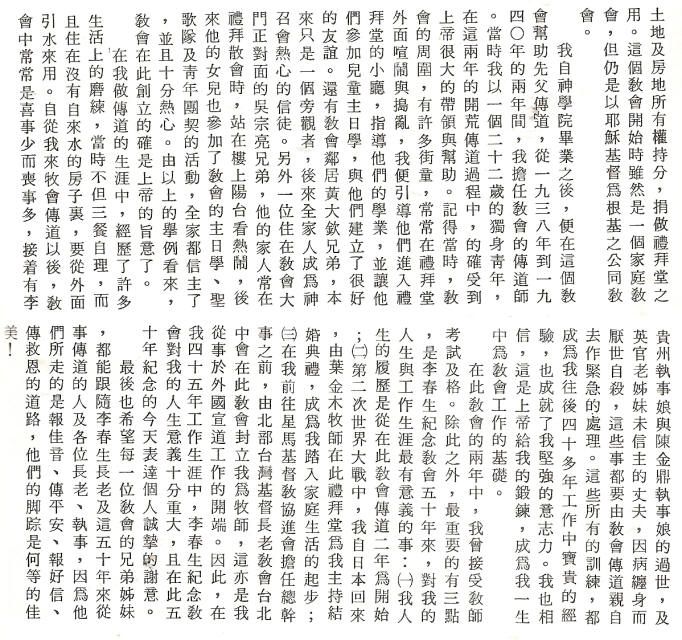 土地及房地所有權持分，捐做禮拜堂之
用。這個教會開始時雖然是一個家庭教
會，但仍是以耶穌基督爲根基之公同教
會。
我自神學院畢業之後，便在這個教
會幫助先父傳道，從一九三八年到一九
四〇年的兩年間，我擔任教會的傳道師
。當時我以一個二十二歲的獨身青年，
在這兩年的開荒傳道過程中，的確受到
上帝很大的帶領與幫助。記得當時，教
會的周圍，有許多街童，常常在禮拜堂
外面喧鬧與搗亂，我便引導他們進入禮
拜堂的小廳，指導他們的學業，並讓他
們參加兒童主日學，與他們建立了很好
的友誼。還有教會鄰居黃大欽兄弟，本
來只是一個旁觀者，後來全家人成爲神
召會熱心的信徒。另外一位住在教會大
門正對面的吳宗亮兄弟，他的家人常在
禮拜散會時，站在樓上陽台看熱鬧，後
來他的女兒也參加了教會的主日學、聖
歌隊及青年團契的活動，全家都信主了
，並且十分熱心。由以上的舉例看來，
教會在此創立的確是上帝的旨意了。
在我做傳道的生涯中，經歷了許多
生活上的磨練，當時不但三餐自理，而
且住在沒有自來水的房子裏，要從外面
引水來用。自從我來牧會傳道以後，教
會中常常是喜事少而喪事多，接着有李
貴州執事娘與陳金鼎執事娘的過世，及
英官老姊妹未信主的丈夫，因病纏身而
厭世自殺，這些事都要由教會傳道親自
去作緊急的處理。這些所有的訓練，都
成爲我往後四十多年工作中寶貴的經
驗，也成就了我堅強的意志力。我也相
信，這是上帝給我的鍛鍊，成爲我一生
中爲教會工作的基礎。
在此教會的兩年中，我曾接受教師
考試及格。除此之外，最重要的有三點
，是李春生紀念教會五十年來，對我的
人生與工作生涯最有意義的事：㈠我人
生的履歷是從在此教會傳道二年爲開始
；㈡第二次世界大戰中，我自日本回來
，由葉金木牧師在此禮拜堂爲我主持結
婚典禮，成爲我踏入家庭生活的起步；
㈢在我前往星馬基督教協進會擔任總幹
事之前，由北部台灣基督長老教會台北
中會在此教會封立我爲牧師，這亦是我
從事於外國宣道工作的開端。因此，在
我四十五年工作生涯中，李春生紀念教
會對我的人生意義十分重大，且在此五
十年紀念的今天表達個人誠摯的謝意。
最後也希望每一位教會的兄弟姊妹
，都能跟隨李春生長老及這五十年來從
事傳道的人及各位長老、執事，因爲他
們所走的是報佳音、傳平安、報好信、
傳救恩的道路，他們的脚踪是何等的佳
美！